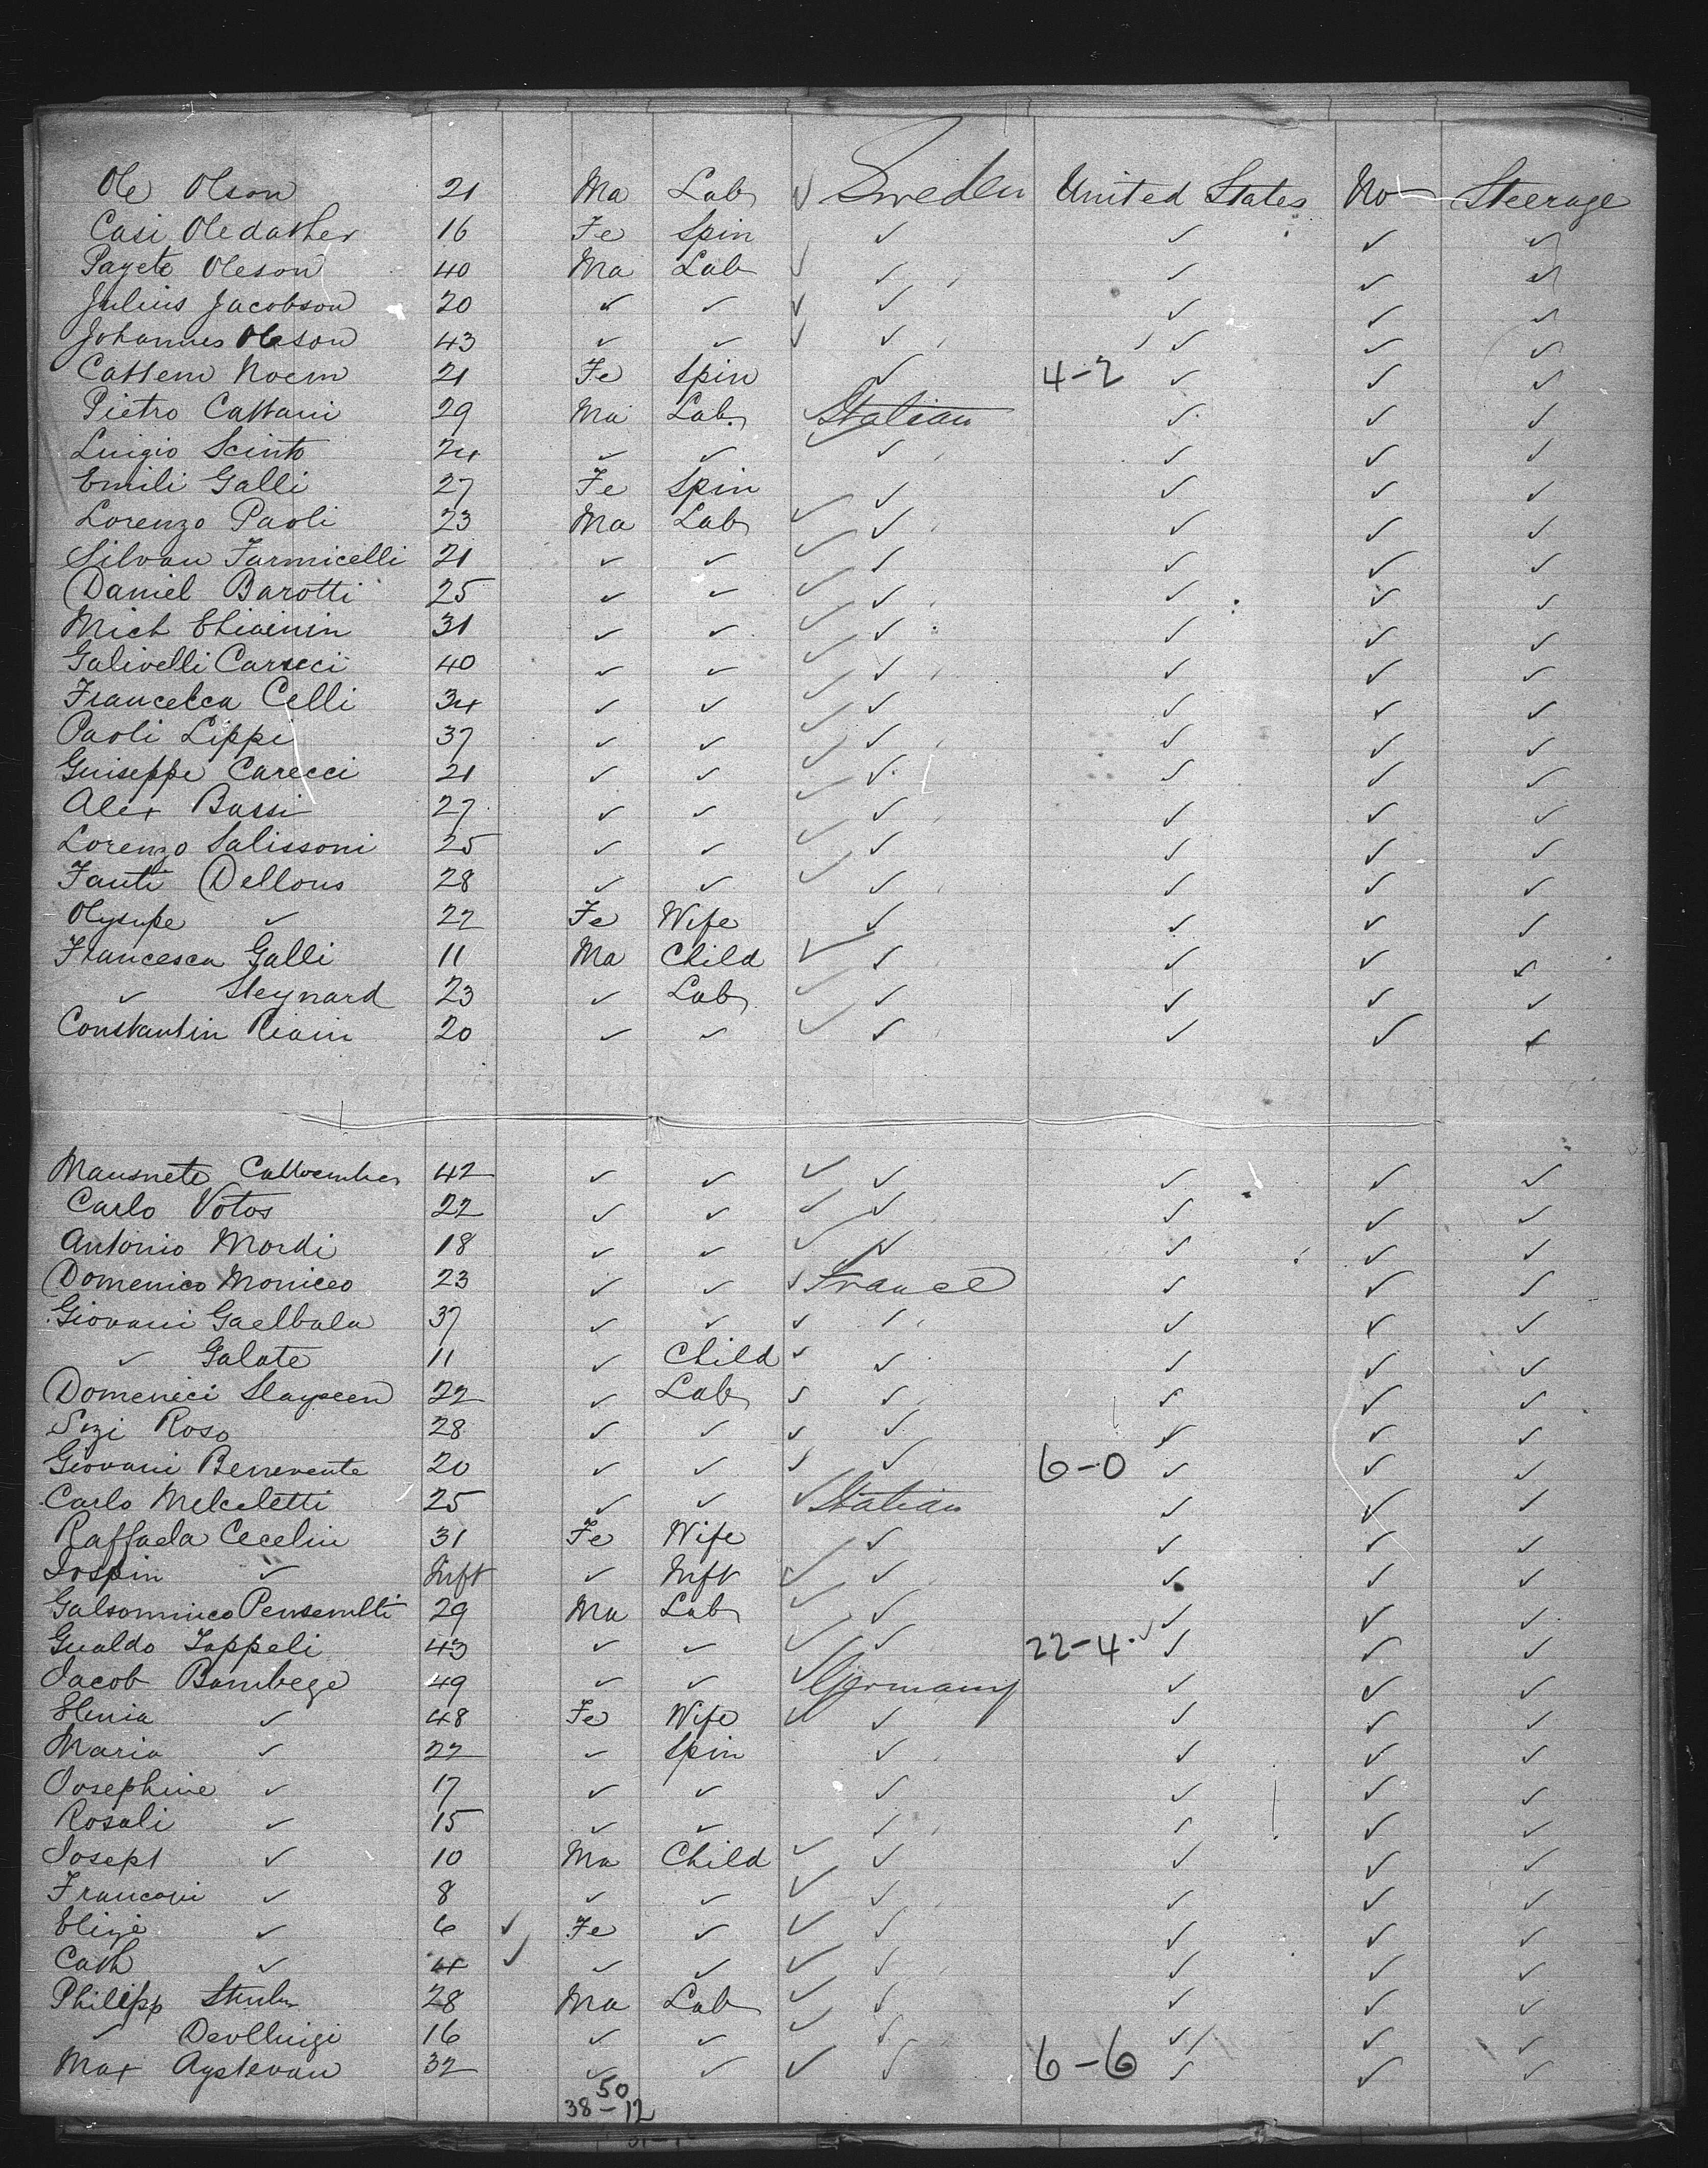 Ole Olson 21 Ma Lab ✓ Sweden United States No Steerage
Casi Oledather 16 Fe Spin ✓ ✓ ✓ ✓
Payete Oleson 40 Ma Lab ✓ ✓ ✓ ✓ ✓
Julius Jacobson 20 ✓ ✓ ✓ ✓ ✓ ✓ ✓
Johannes Oleson 43 ✓ ✓ ✓ ✓ ✓ ✓ ✓
Cattem Noem 21 Fe Spin ✓ 4-2 ✓ ✓ ✓
Pietro Cattani 29 Ma Lab. ✓ Italian ✓ ✓ ✓
Luigio Scinto 24 ✓ ✓ ✓ ✓ ✓ ✓ ✓
Emili Galli 27 Fe Spin ✓ ✓ ✓ ✓
Lorenzo Paoli 23 Ma Lab ✓ ✓ ✓ ✓ ✓
Silvan Farmicelli 21 ✓ ✓ ✓ ✓ ✓ ✓ ✓
Daniel Barotti 25 ✓ ✓ ✓ ✓ ✓ ✓ ✓
Mich 31 ✓ ✓ ✓ ✓ ✓ ✓ ✓
Galivelli Caracci 40 ✓ ✓ ✓ ✓ ✓ ✓ ✓
Francesca Celli 34 ✓ ✓ ✓ ✓ ✓ ✓ ✓
Paoli Lippi 37 ✓ ✓ ✓ ✓ ✓ ✓ ✓
Guiseppe Carecci 21 ✓ ✓ ✓ ✓ ✓ ✓ ✓
Alex Bassi 27 ✓ ✓ ✓ ✓ ✓ ✓ ✓
Lorenzo Salissoni 25 ✓ ✓ ✓ ✓ ✓ ✓ ✓
Fanti Dellous 28 ✓ ✓ ✓ ✓ ✓ ✓ ✓
Olysupe ✓ 22 Fe Wife ✓ ✓ ✓ ✓
Francesca Galli 11 Ma Child ✓ ✓ ✓ ✓ ✓
✓ Steynard 23 ✓ Lab ✓ ✓ ✓ ✓ ✓
Constantin 20 ✓ ✓ ✓ ✓ ✓ ✓ ✓
Mausnete 42 ✓ ✓ ✓ ✓ ✓ ✓ ✓
Carlo Votos 22 ✓ ✓ ✓ ✓ ✓ ✓ ✓
Antonio Mordi 18 ✓ ✓ ✓ ✓ ✓ ✓ ✓
Domenico Moniceo 23 ✓ ✓ ✓ France ✓ ✓ ✓
Giovani Gaelbala 37 ✓ ✓ ✓ ✓ ✓ ✓ ✓
✓ Galate 11 ✓ Child ✓ ✓ ✓ ✓ ✓
Domenici Slayseen 22 ✓ Lab ✓ ✓ ✓ ✓ ✓
Sizi Roso 28 ✓ ✓ ✓ ✓ ✓ ✓ ✓
Giovani Benevente 20 ✓ ✓ ✓ ✓ 6-0 ✓ ✓ ✓
Carlo Melceletti 25 ✓ ✓ ✓ Italian ✓ ✓ ✓
Raffaela Cecelin 31 Fe Wife ✓ ✓ ✓ ✓
Iospin ✓ Inft ✓ Inft ✓ ✓ ✓ ✓ ✓
Galsominico 29 Ma Lab ✓ ✓ ✓ ✓ ✓
Gualdo Tappeli 43 ✓ ✓ ✓ ✓ 22-4 ✓ ✓ ✓
Jacob Bambege 49 ✓ ✓ ✓ Germany ✓ ✓ ✓
Elenia ✓ 48 Fe Wife ✓ ✓ ✓ ✓ ✓
Maria ✓ 22 ✓ Spin ✓ ✓ ✓ ✓
Josephine ✓ 17 ✓ ✓ ✓ ✓ ✓ ✓
Rosali ✓ 15 ✓ ✓ ✓ ✓ ✓ ✓
Josept ✓ 10 Ma Child ✓ ✓ ✓ ✓ ✓
Francopi ✓ 8 ✓ ✓ ✓ ✓ ✓ ✓ ✓
Elize ✓ 6 ✓ Fe ✓ ✓ ✓ ✓ ✓ ✓
Cath ✓ 4 ✓ ✓ ✓ ✓ ✓ ✓ ✓ ✓
Philipp 28 Ma Lab ✓ ✓ ✓ ✓ ✓
✓ Devlluigi 16 ✓ ✓ ✓ ✓ ✓ ✓ ✓
Max Aystevan 32 ✓ ✓ ✓ ✓ 6-6 ✓ ✓ ✓
50
38-12